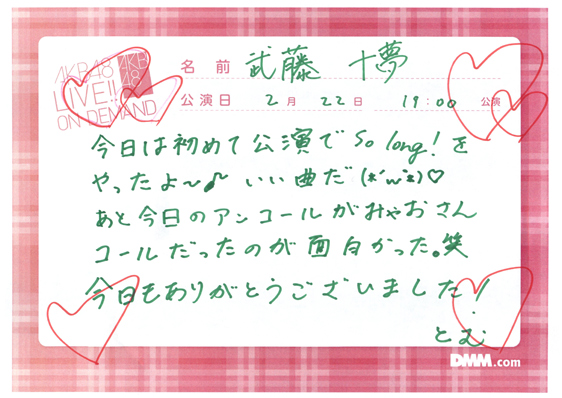 AKB48
LIVE!!
ON DEMAND
AKB
48
名前 武藤 十夢
公演日 2月 22日 19:00 公演
今日は初めて公演でSo long!を
やったよ〜♪ いい曲だ(*´ω`*)♡
あと今日のアンコールがみゃおさん
コールだったのが面白かった。笑
今日もありがとうございました!
とむ
DMM.com